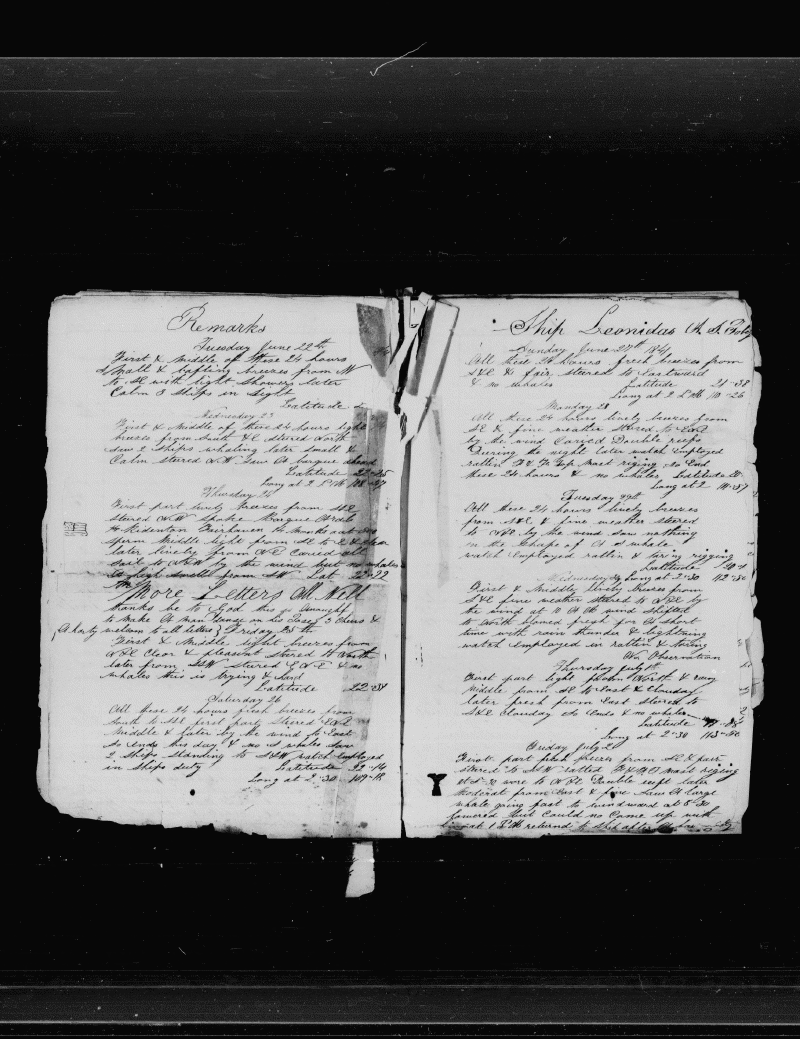 Remarks
Tuesday June 22th
First & Middle of these 24 hours
Small & baffling breezes from NW
to SE with light Showers later
Calm 3 Ships in Sight
Latitude
Wednesday 23
First & Middle of these 24 hours light
breezes from South &E stered North
Saw 2 Ships whaling later small &
Calm stered NW Saw A barque ahead
Latitude 22-45
Long at 2 PM 108-47
Thursday 24
First part lively breezes from
stered NW Spoke Barque
Fairhaven 14 Months out
sperm Middle light from SE to E &
later lively from NE Caried all
Sail to NNW by the wind but no whales
A high swell from SW Lat 22-22
More Letters All Well
thanks be to God this is Enough
to make A man 3 Cheers &
A harty welcom to all letters } Friday 25 th
First & Middle light breezes from
NE Clear & pleasant stered to North
later from SSW stered ENE & no
whales this is trying & hard
Latitude 22-34
Saturday 26
All these 24 hours fresh breezes from
South to SSE first part Stered ENE
Middle & later by the wind to East
So Ends this day & no whales Saw
2 Ships Standing to SSW watch employed
in Ships duty Latitude 22-14
Long at 2-30 109-18
Ship Leonidas
Sunday June 27th 1841
All these 24 hours fresh breezes from
S&E & fair stered to Eastward
& no whales Latitude 21-38
Long at 2 PM 110-26
Monday 28
All these 24 hours lively breezes from
SE & fine weather stered to ENE
by the wind Caried Double reefs
During the night later watch Employed
Mast riging So End
these 24 hours & no whales Latitude
Long at 2 111-57
Tuesday 29th
All these 24 hours lively breezes
from SSE & fine weather stered
to NNE by the wind saw nothing
in the Shape of A whale
watch employed ratlin & taring rigging
Latitude
Wednesday Long at 2-30 112-50
First & Middle lively breezes from
S&E fine weather stered to NNE by
the wind at 10 AM wind shifted
to North blowed fresh for A Short
time with rain thunder & lightning
watch Employed in ratlin & taring
No Observation
Thursday July 1th
First part light from North & rany
Middle from SE to East & Clouday
later fresh from East stered to
S&E Clouday So Ends & no whales
Latitude
Long at 2-30 113-40
Friday July 2
First part fresh breezes from SE & fair
stered to SSW ratled mast riging
at 2-30 wore to NNE Double reefs later
Moderate from East & fine Saw A large
whale going fast to windward at 5-30
lowered but Could no Come up with
at 1 PM returned to Ship